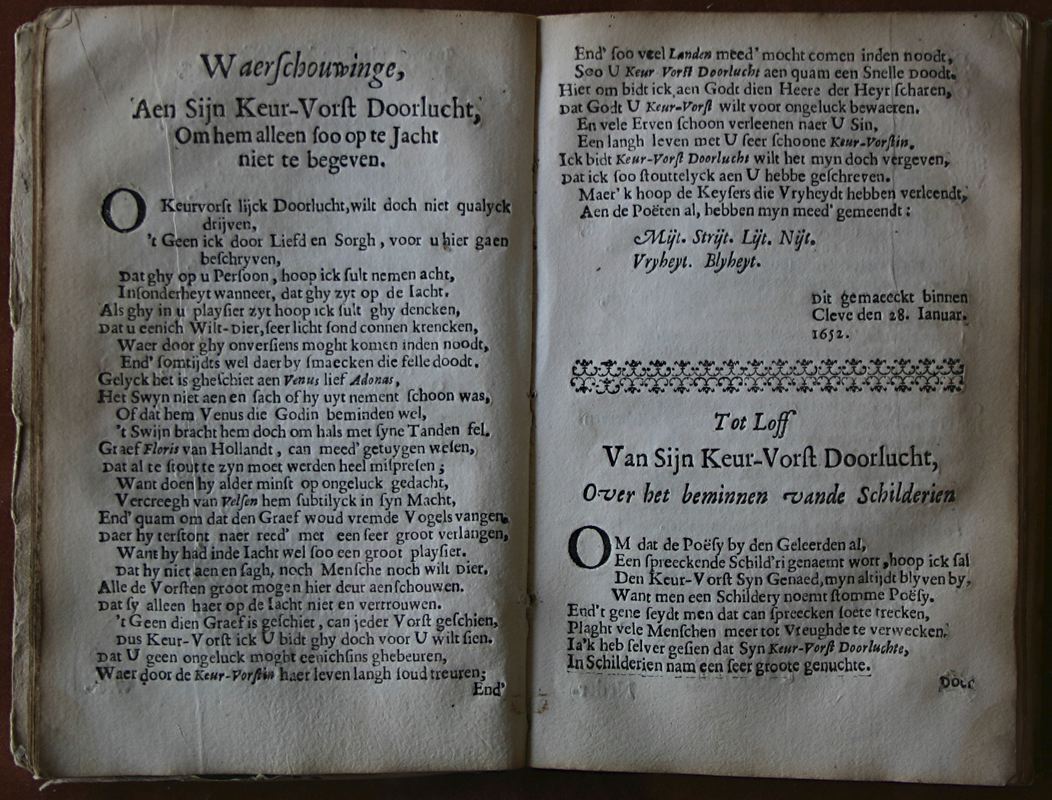 Waerschouwinge,
Aen Sijn Keur-Vorst Doorlucht,
Om hem alleen soo op te Jacht
niet te begeven.
O Keurvorst lijck Doorlucht, wilt doch niet qualyck
drijven,
't Geen ick door Liefd en Sorgh, voor u hier gaen
beschryven,
Dat ghy op u Persoon, hoop ick sult nemen acht,
Insonderheyt wanneer, dat ghy zyt op de Iacht.
Als ghy in u playsier zyt hoop ick sult ghy dencken,
Dat u eenich Wilt-Dier, seer licht sond connen krencken,
Waer door ghy onversiens moght komen inden noodt,
End' somtijdts wel daer by smaecken die felle doodt.
Gelyck het is gheschiet aen Venus lief Adonas,
Het Swyn niet aen en sach of hy uyt nement schoon was,
Of dat hem Venus die Godin beminden wel,
't Swijn bracht hem doch om hals met syne Tanden fel.
Graef Floris van Hollandt, can meed' getuygen wesen,
Dat al te stout te zyn moet werden heel mispresen;
Want doen hy alder minst op ongeluck gedacht,
Vercreegh van Velsen hem subtilyck in syn Macht,
End' quam om dat den Graef woud vremde Vogels vangen,
Daer hy terstont naer reed' met een seer groot verlangen,
Want hy had inde Iacht wel soo een groot playsier.
Dat hy niet aen en sagh, noch Mensche noch wilt Dier.
Alle de Vorsten groot mogen hier deur aenschouwen.
Dat sy alleen haer op de Iacht niet en vertrouwen.
't Geen dien Graef is geschiet, can jeder Vorst geschien,
Dus Keur-Vorst ick U bidt ghy doch voor U wilt sien.
Dat U geen ongeluck moght eenichsins ghebeuren,
Waer door de Keur-Vorstin haer leven langh soud treuren;
End'
End' soo veel Landen meed' mocht comen inden noodt,
Soo U Keur Vorst Doorlucht aen quam een Snelle Doodt.
Hier om bidt ick aen Godt dien Heere der Heyr scharen,
Dat Godt U Keur-Vorst wilt voor ongeluck bewaeren.
En vele Erven schoon verleenen naer U Sin,
Een langh leven met U seer schoone Keur-Vorstin.
Ick bidt Keur-Vorst Doorlucht wilt het myn doch vergeven,
Dat ick soo stouttelyck aen U hebbe geschreven.
Maer 'k hoop de Keysers die Vryheydt hebben verleendt,
Aen de Poëten al, hebben myn meed' gemeendt:
Mijt. Strijt. Lijt. Nijt.
Vryheyt. Blyheyt.
Dit gemaeckt binnen
Cleve den 28. Ianuar.
1652.
Tot Loff
Van Sijn Keur-Vorst Doorlucht,
Over het beminnen vande Schilderien
OM dat de Poësy by den Geleerden al,
Een spreeckende Schild'ri genaemt wort, hoop ick sal
Den Keur-Vorst Syn Genaed, myn altijdt blyven by,
Want men een Schildery noemt stomme Poësy.
End't gene seydt men dat can spreecken soete trecken,
Plaght vele Menschen meer tot Vreughde te verwecken.
Ia'k heb selver gesien dat Syn Keur-Vorst Doorluchte,
In Schilderien nam een seer groote genuchte.
Door